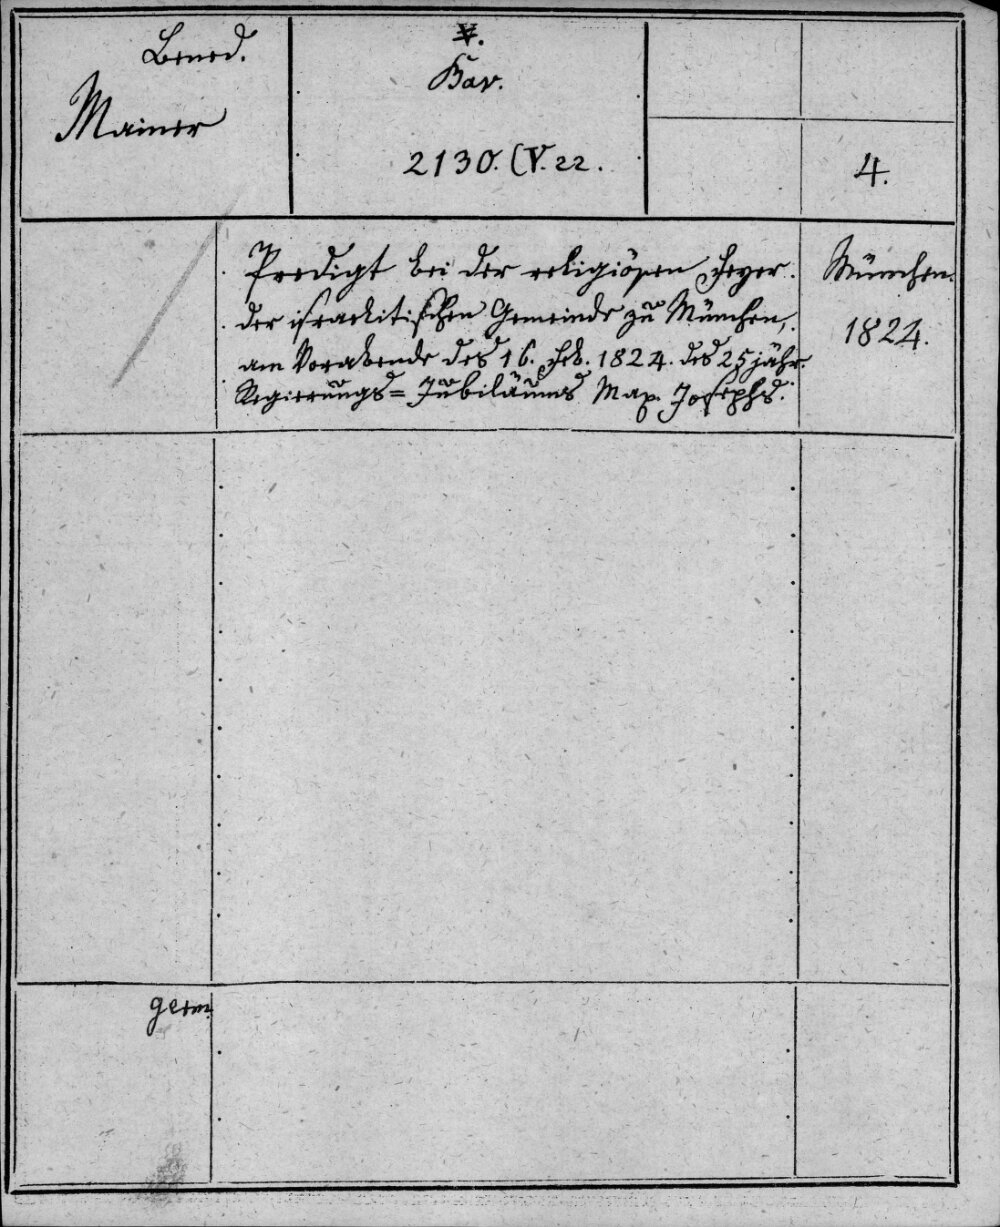 Bened.
Mainer
V.
Bav.
2130. (V. 22.
4.
Predigt bei der religiösen Feyer
der israelitischen Gemeinde zu München,
am Vorabende des 16. Feb. 1824. des 25jähr.
Regierungs=Jubiläums Max. Josephs.
München.
1824.
germ.